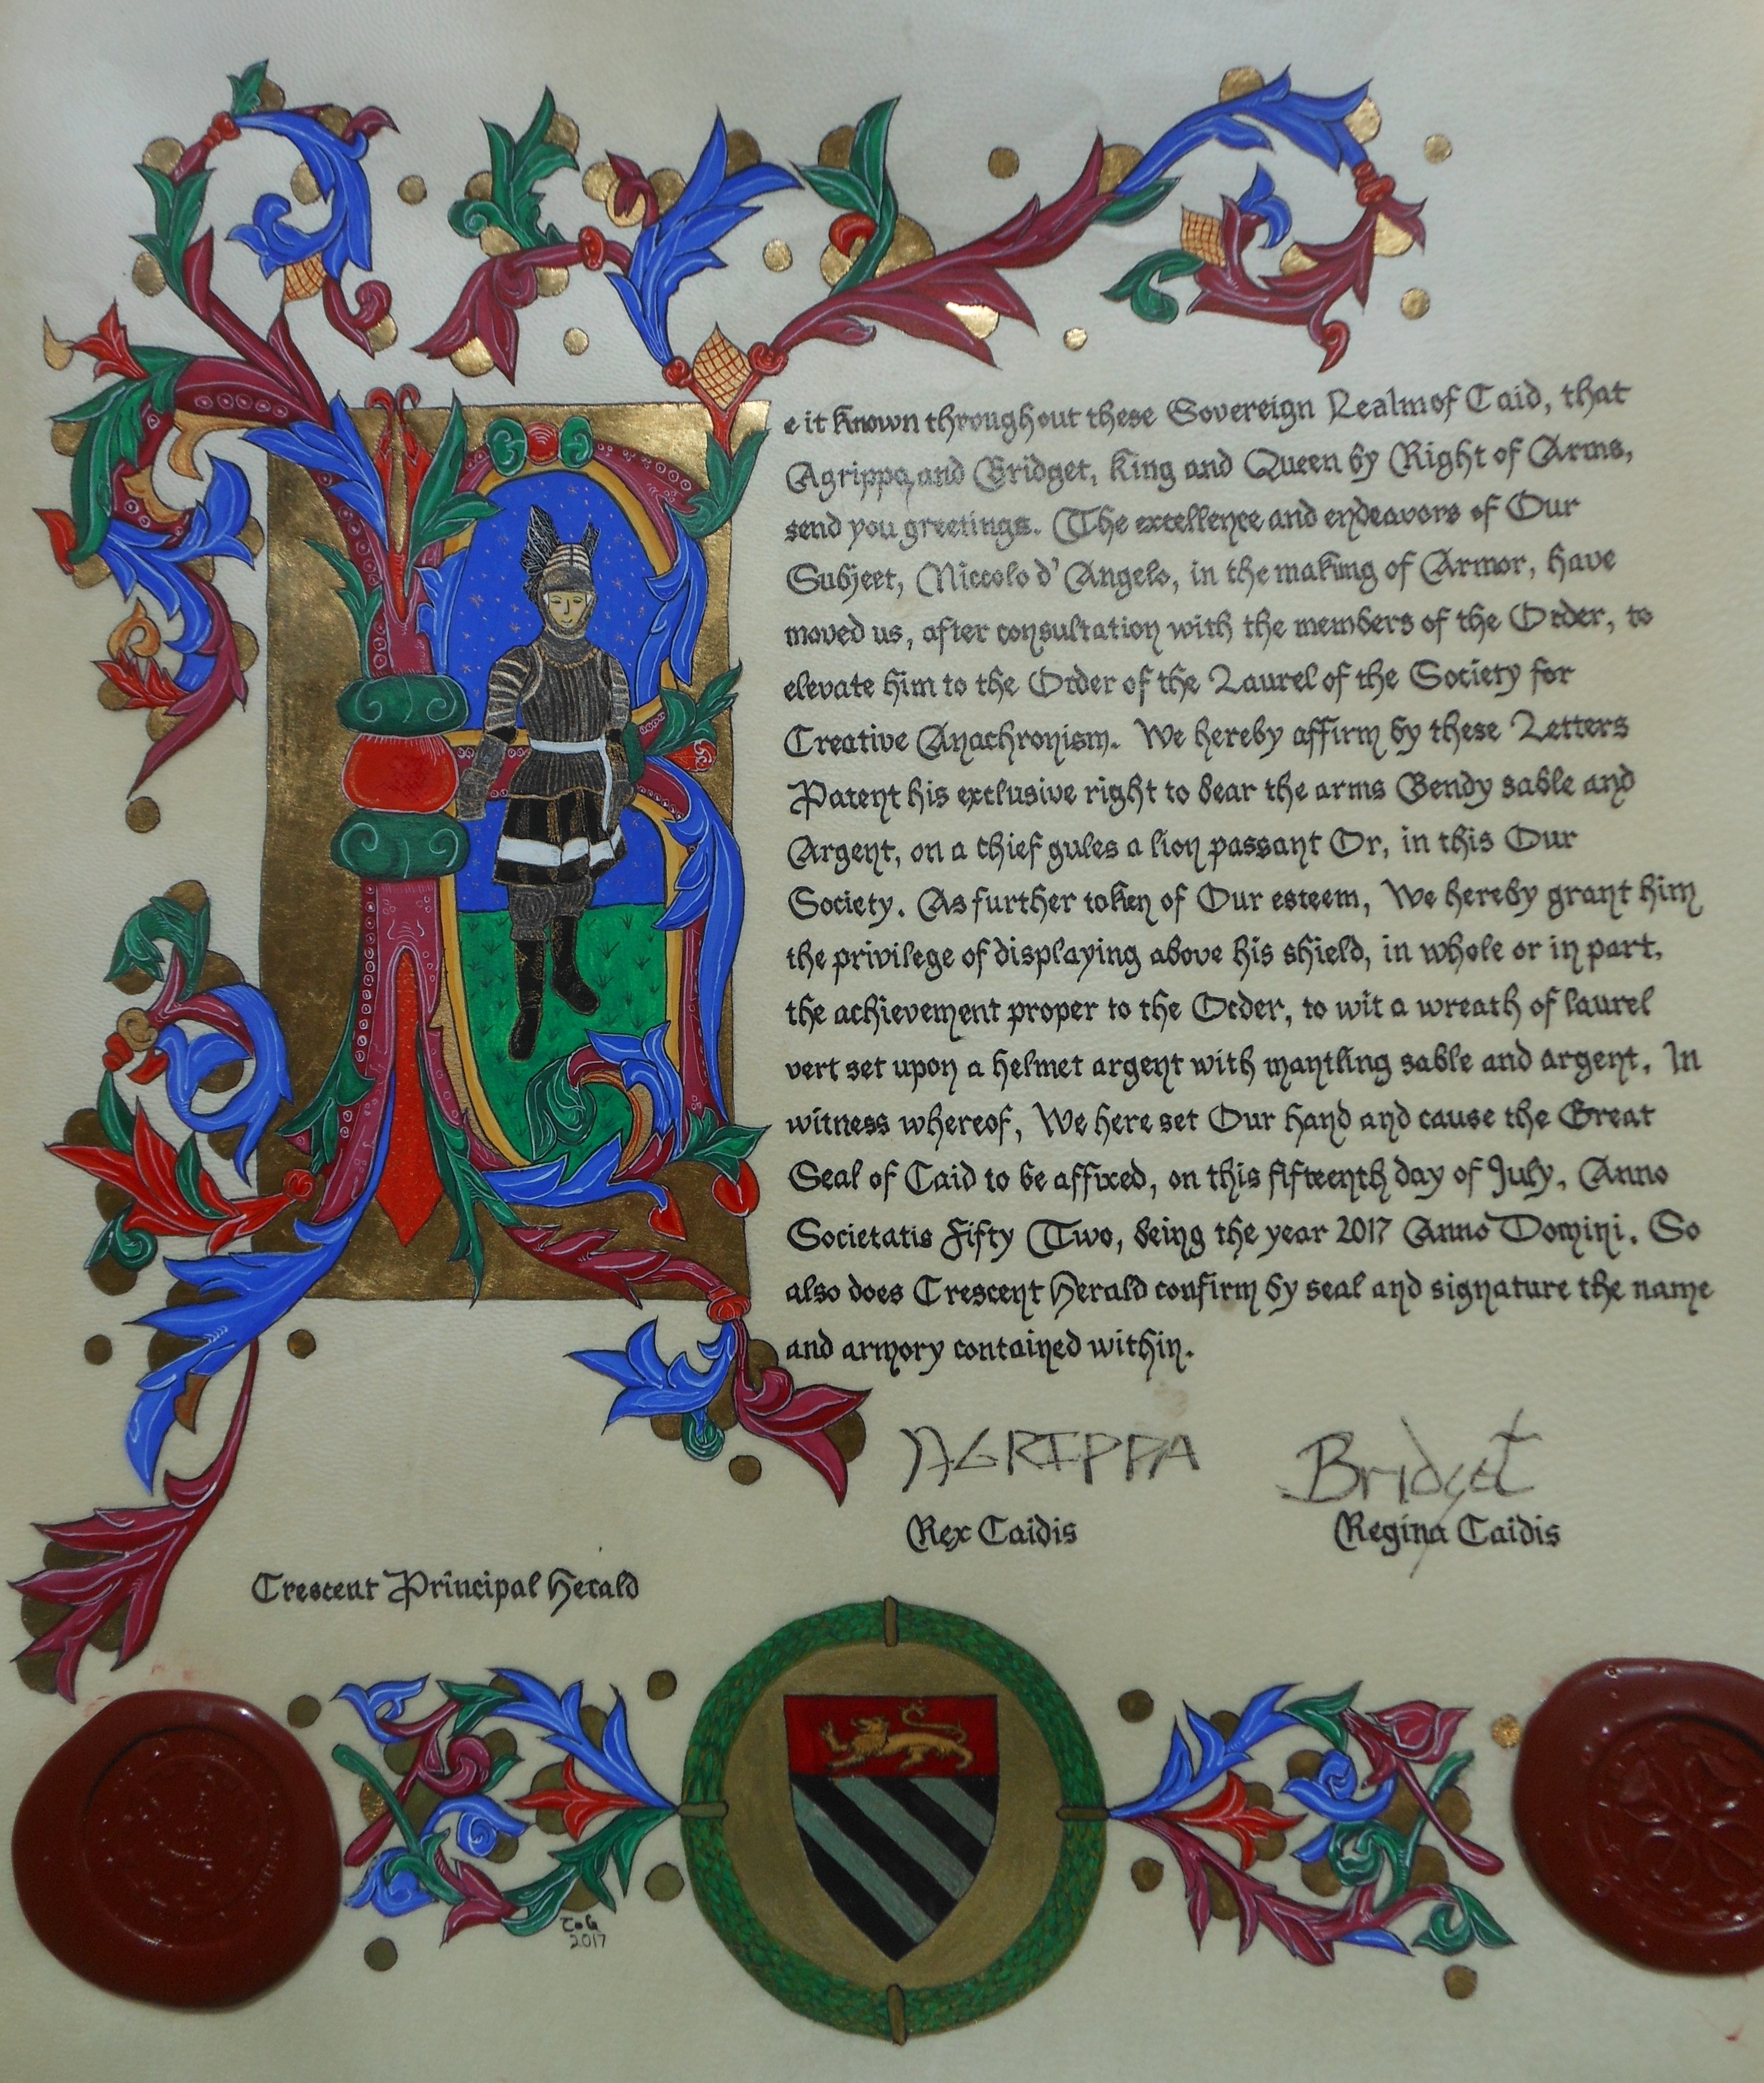 Be it known throughout these Sovereign Realm of Caid, that
Agrippa, and Bridget, King and Queen by Right of Arms,
send you greetings. The excellence and endeavors of Our
Subject, Niccolo d'Angelo, in the making of Armor, have
moved us, after consultation with the members of the Order, to
elevate him to the Order of the Laurel of the Society for
Creative Anachronism. We hereby affirm by these Letters
Patent his exclusive right to bear the arms Bendy sable and
Argent, on a chief gules a lion passant Or, in this Our
Society. As further token of Our esteem, We hereby grant him
the privilege of displaying above his shield, in whole or in part,
the achievement proper to the Order, to wit a wreath of laurel
vert set upon a helmet argent with mantling sable and argent. In
witness whereof, We here set Our hand and cause the Great
Seal of Caid to be affixed, on this fifteenth day of July, Anno
Societatis Fifty Two, being the year 2017 Anno Domini. So
also does Crescent Herald confirm by seal and signature the name
and armory contained within.
AGRIPPA Bridget
Rex Caidis Regina Caidis
Crescent Principal Herald
ToG
2017